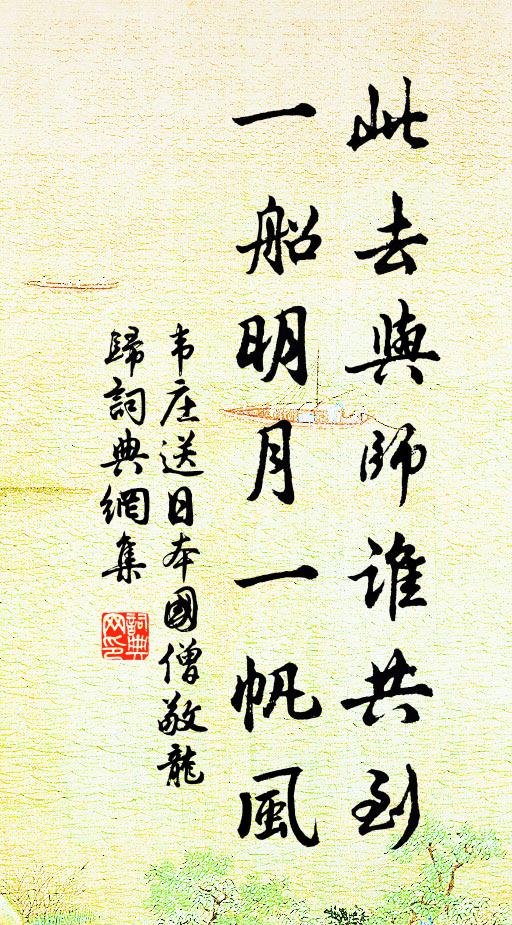 此去與師誰共到
一船明月一帆風
韦庄送日本國僧敬龍
歸詞典網集
詞典
网印